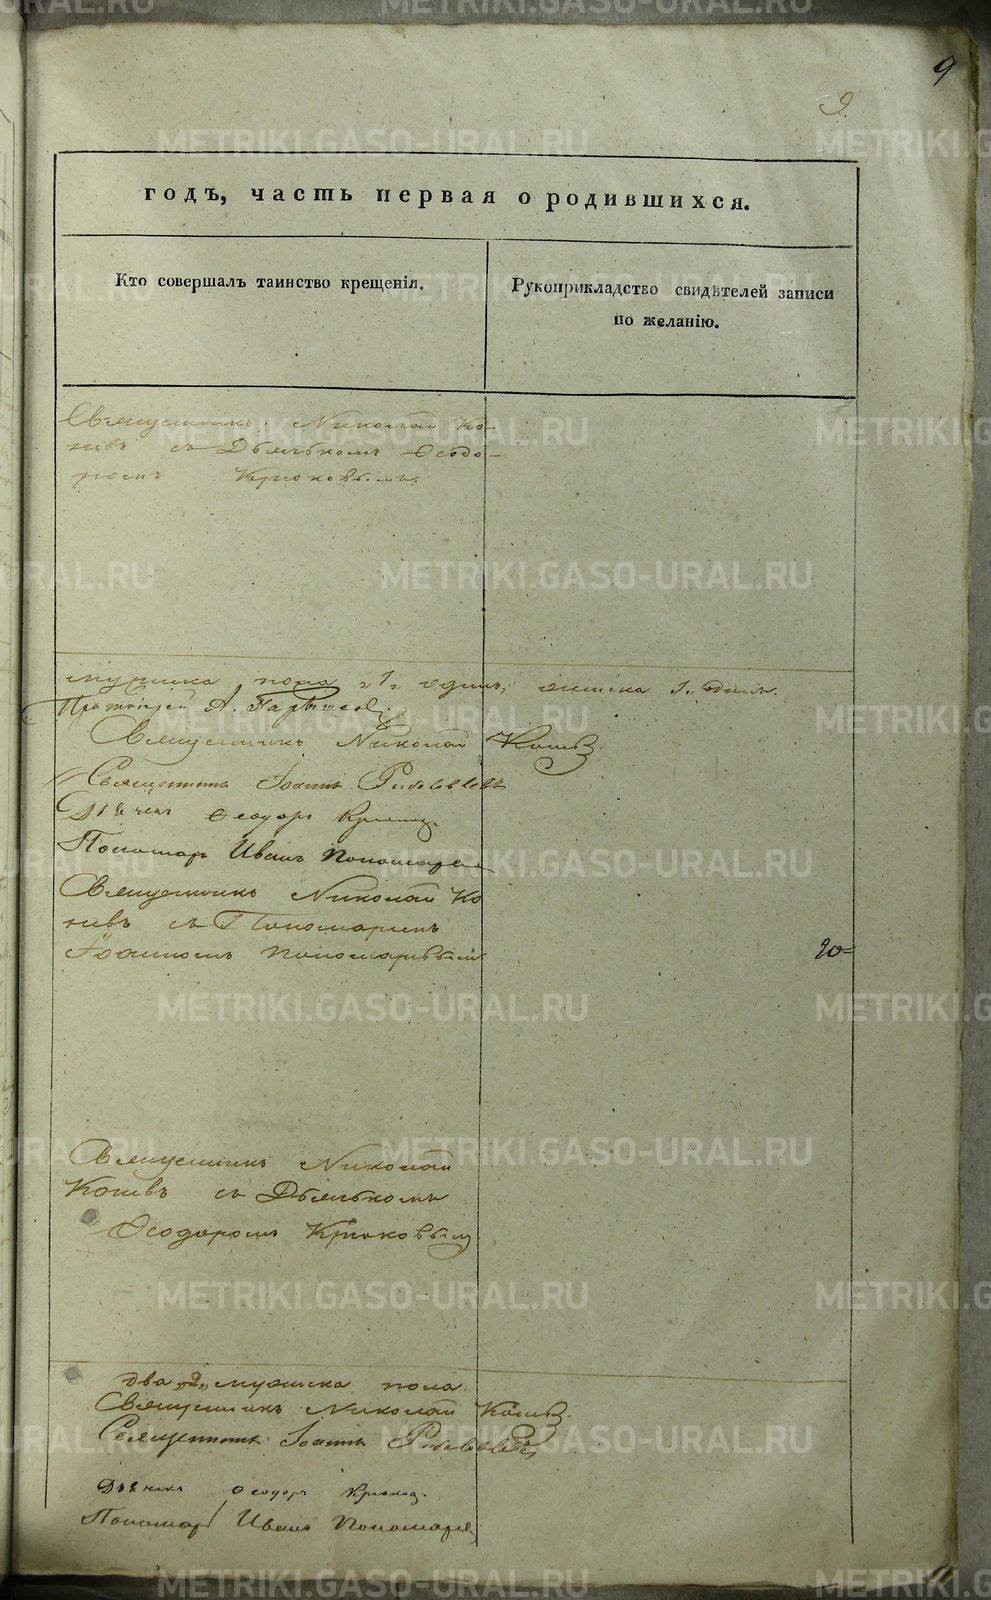 9
9.
годъ, часть первая о родившихся.
Кто совершалъ таинство крещенія.
Рукоприкладство свидѣтелей записи
по желанію.
Священникъ Николай Ко-
съ Дьячкомъ Ѳеодо-
ромъ Крюковымъ.
мужска пола „1„ одинъ, женска 1. одна.
Протоіерей А.
Священникъ Николай
Священникъ Іоаннъ
Дьячекъ Ѳеодоръ Крюковъ
Пономарь Иванъ Пономаревъ
Священникъ Николай Ко
съ Пономаремъ
Іоанномъ Пономаревымъ
20
Священникъ Николай
съ Дьячкомъ
Ѳеодоромъ Крюковымъ
два „2„ мужска пола
Священникъ Николай
Священникъ Іоаннъ
Дьячекъ Ѳеодоръ Крюковъ.
Пономарь Иванъ Пономаревъ
METRIKI.GASO-URAL.RU